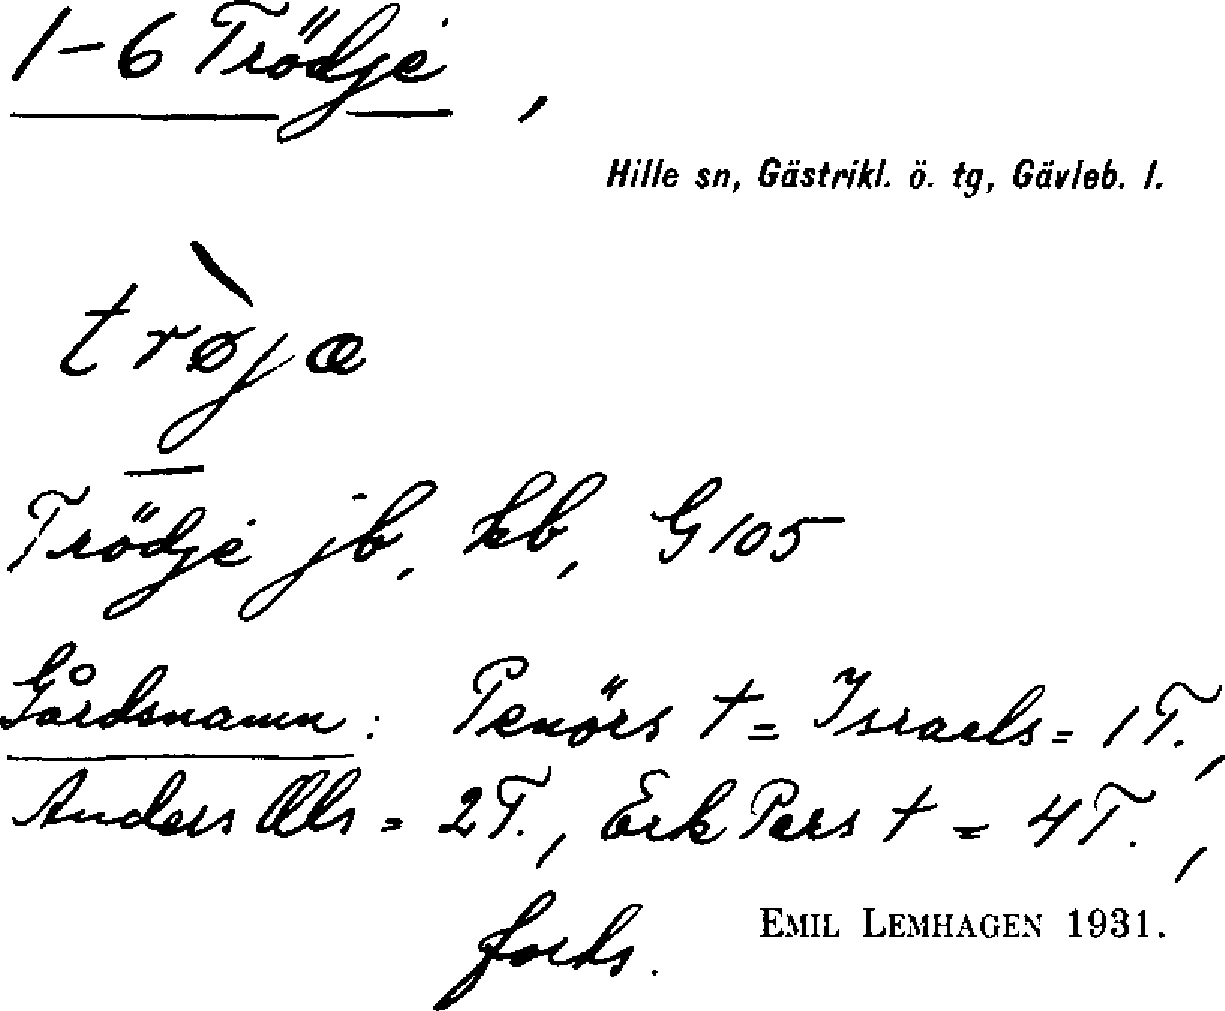 1-6 Trödje,
Hille sn, Gästrikl. ö. tg, Gävleb. l.
trø̀jæ
Trödje jb, kb, G105
Gårdsnamn: Penörs † = Israels = 1T.,
Anders Ols = 2T., Erk Pers † = 4T.,
forts.
EMIL LEMHAGEN 1931.